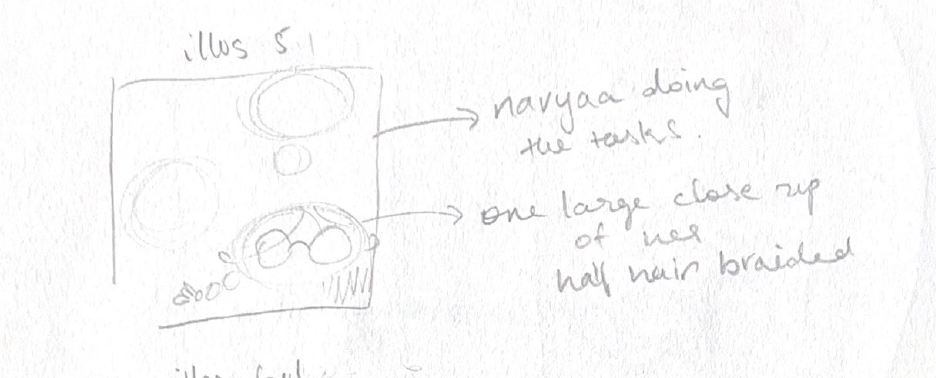 illus 5
navyaa doing
the tasks.
one large close up
of her
half hair braided